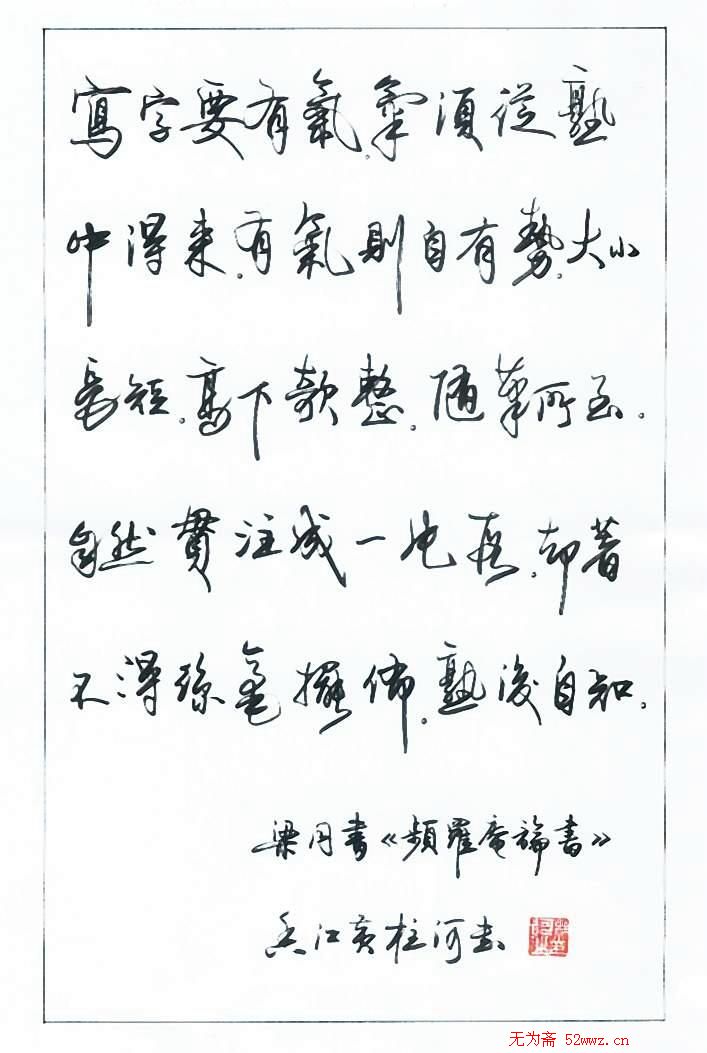 寫字要有氣。氣須從熟
中得来。有氣則自有勢。大小
長短。高下欹整。隨筆所至。
自然貫注成一片段。却著
不得絲毫擺佈。熟後自知。
梁同書《頻羅庵論書》
香江黃柱河书
无为斋 52wwz.cn